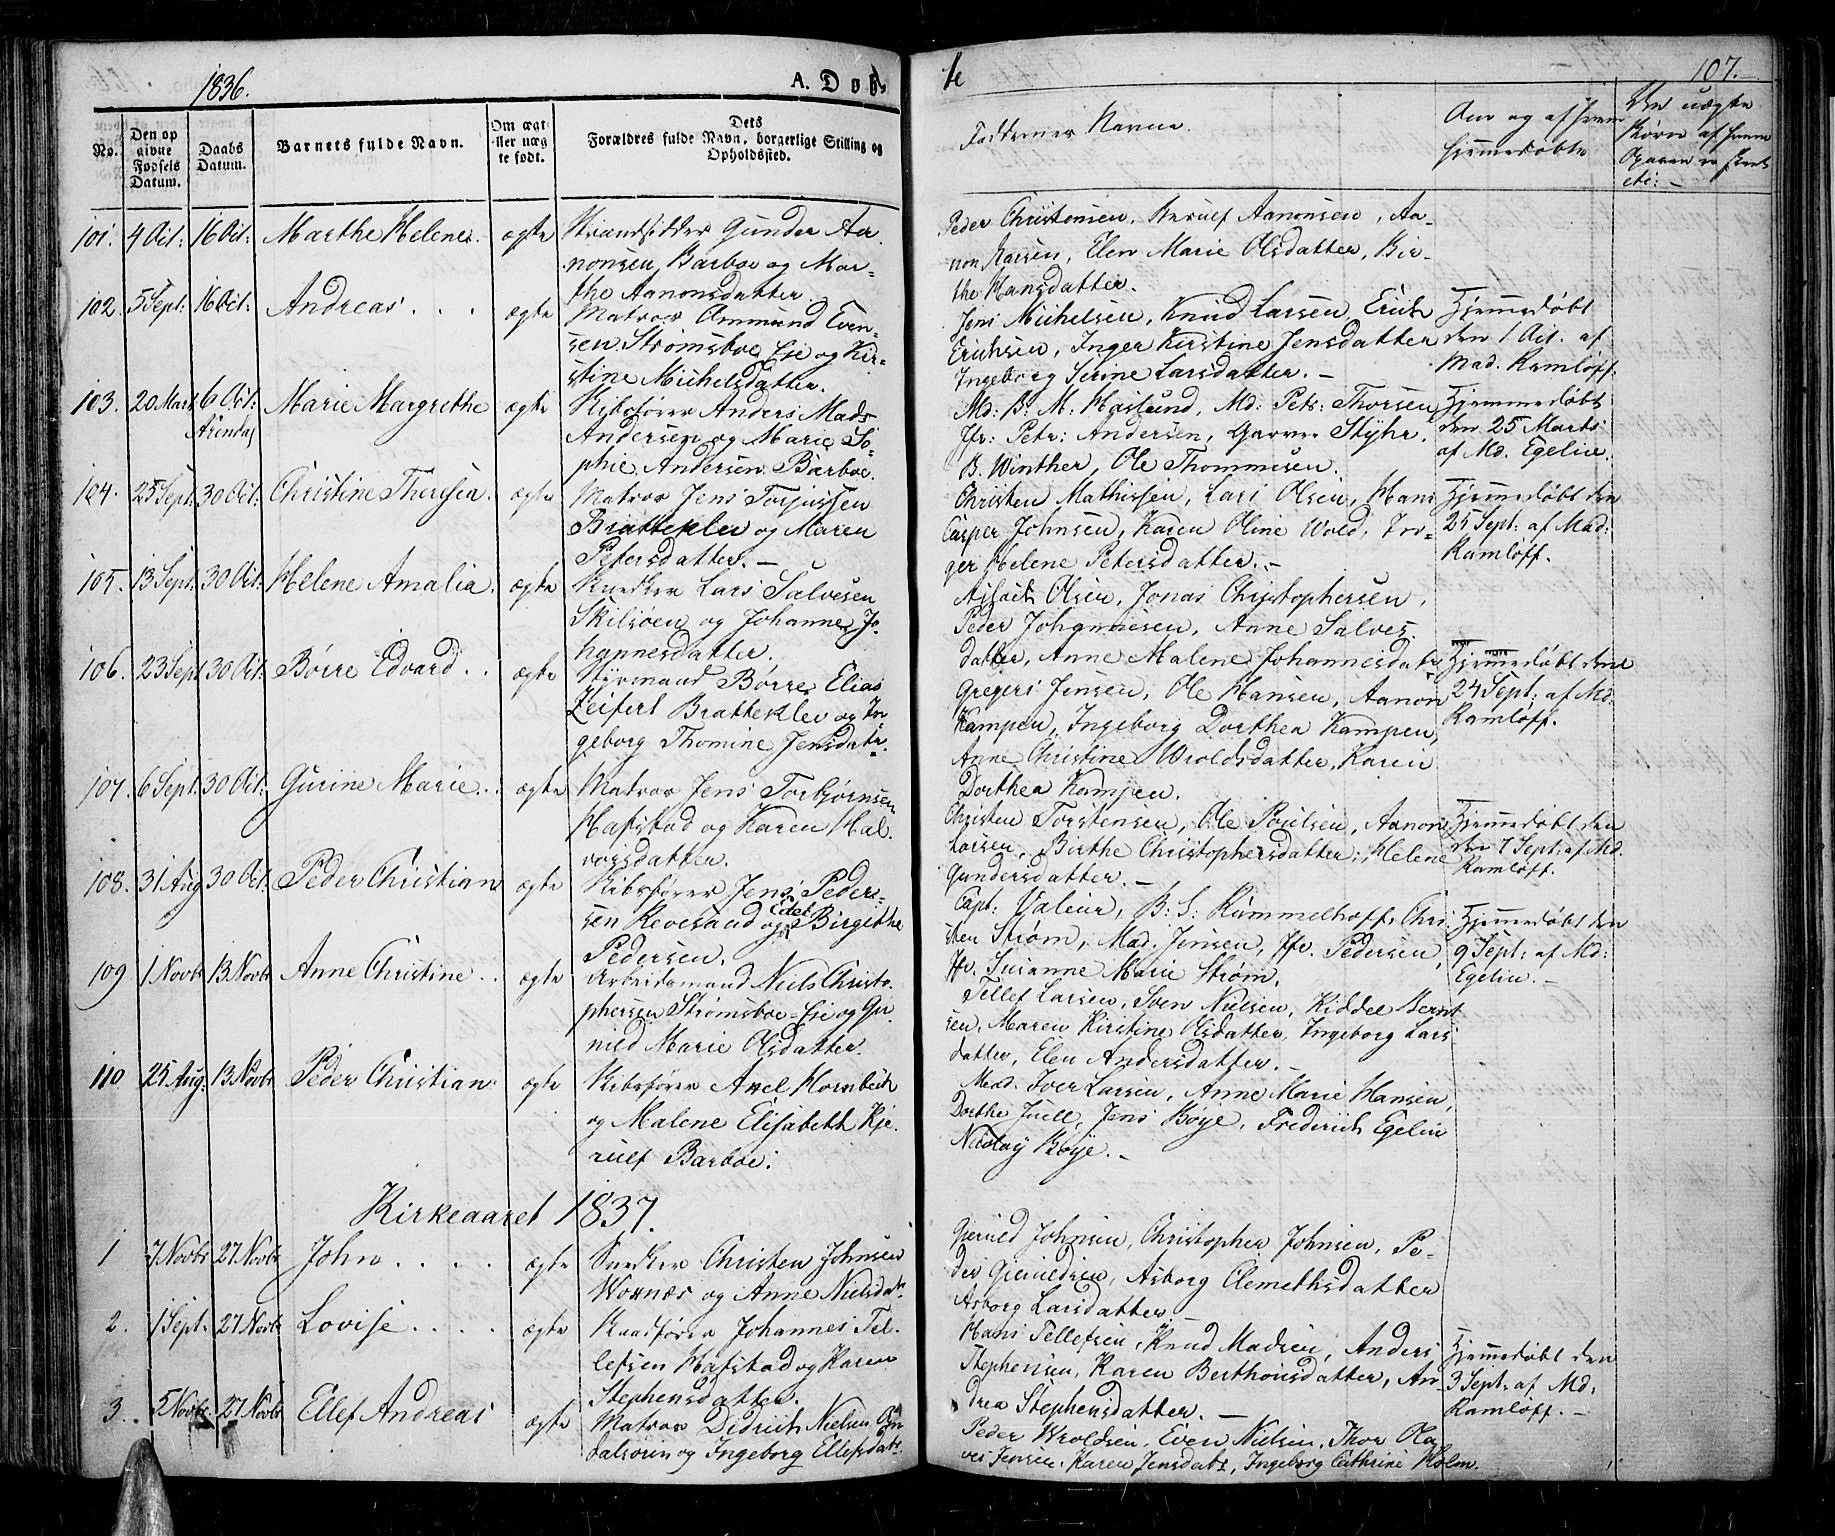 1836.
A. Døb
te
107.
No.
Den op
givne
Fødsels
Datum.
Daabs
Datum.
Barnets fulde Navn.
Om ægt
eller uæg
te født.
Dets
Forældres fulde Navn, borgerlige Stilling og
Opholdssted.
Faddernes Navne.
Om og af hvem
hjemmedøbte
101. 4 Oct: 16 Oct: Marthe Helene. ægte
Strandsidder Gunder Aa-
nonsen Barboe og Mar-
the Aanonsdatter.
Peder Christensen, Aanonsen, Aa-
non Larsen, Elen Marie Olsdatter, Bir-
the Hansdatter.
102. 5 Sept: 16 Oct: Andreas . . . ægte
Matros Ommund Even-
sen Strømsboe Eie og Kir-
stine Michelsdatter.
Jens Michelsen, Knud Larsen, Erich
Erichsen, Inger Kirstine Jensdatter
Ingeborg Serine Larsdatter. -
Hjemmedøbt
den 1 Oct. af
Mad. Ramløff.
103. 20 Marts 6 Oct: Arendal Marie Margrethe ægte
Skibsfører Anders Mads
Andersen og Marie So-
phie Andersen Barboe.
Md: B: M: Haslund, Md: Petr: Thorsen
Jfr: Petr: Andersen, Garver Styhr.
B. Winther, Ole Thommesen.
Hjemmedøbt
den 25 Marts
af Md. Egelie.
104. 25 Sept. 30 Oct: Christine Theresia. ægte
Matros Jens Torjussen
Bratteklev og Maren
Petersdatter. -
Christen Mathissen, Lars Olsen, Hans
Casper Johnsen, Karen Oline Wold, In-
ger Helene Petersdatter. -
Hjemmedøbt den
25 Sept: af Mad:
Ramløff.
105. 13 Sept. 30 Oct: Helene Amalia. ægte
Snedker Lars Salvesen
Skilsøen og Johanne Jo-
hannesdatter.
Aslach Olsen, Jonas Christophersen,
Peder Johannesen, Anne Salves-
datter, Anne Malene Johannesdatr
106. 23 Sept 30 Oct: Børre Edvard . . ægte
Styrmand Børre Elias
Zeifert Bratteklev og In-
geborg Thomine Jensdatr.
Gregers Jensen, Ole Hansen, Aanon
Kampen, Ingeborg Dorthea Kampen,
Anne Christine Wroldsdatter, Karen
Dorthea Kampen.
Hjemmedøbt den
24 Sept: af Md:
Ramløff.
107. 6 Sept: 30 Oct: Gurine Marie . . ægte
Matros Jens Torbjørnsen
Hafstad og Karen Hal-
vorsdatter.
Christen Torstensen, Ole Poulsen, Aanon
Larsen, Birthe Christophersdatter, Helene
Gundersdatter. -
Hjemmedøbt den
den 7 Sept: af Md.
Ramløff.
108. 31 Aug 30 Oct: Peder Christian ægte
Skibsfører Jens Peder-
sen Revesand og Edel Birgethe
Pedersen.
Capt: Valeur, B: S: Rummelhoff, Chri-
sten Strøm, Mad. Jensen, Jfr. Pedersen,
Jfr. Susanne Marie Strøm.
Hjemmedøbt den
9 Sept: af Md:
Egelie. -
109 1 Novbr 13 Novbr Anne Christine . . ægte
Arbeidsmand Niels Christo-
phersen Strømsboe-Eie og Gu-
nild Marie Olsdatter.
Tellef Larsen, Sven Nielsen, Kiddel Bernt
sen, Maren Kirstine Olsdatter, Ingeborg Lars-
datter, Elen Andersdatter. -
110 25 Aug: 13 Novbr Peder Christian. ægte
Skibsfører Axel Hornbech
og Malene Elisabeth Kje-
rulf Barboe.
Mad. Iver Larsen, Anne Marie Hansen,
Dorthe Juell, Jens Bøye, Frederich Egelie
Nicolay Bøye. -
Kirkeaaret 1837.
1 7 Novbr 27 Novbr John . . . . ægte
Snedker Christen Johnsen
Wornæs og Anne Nielsdatr
Gjeruld Johnsen, Christopher Johnsen, Pe-
der Gjeruldsen, Asborg Clemethsdatter
Asborg Larsdatter. -
2. 1 Sept. 27 Novbr Lovise . . . . ægte
Johannes Tel-
lefsen Hafstad og Karen
Stephensdatter.
Hans Tellefsen, Knud Madsen, Anders
Stephensen, Karen Berthonsdatter, An-
drea Stephensdatter. -
Hjemmedøbt den
3 Sept: af Md:
Ramløff. -
3. 5 Novbr. 27 Novbr Ellef Andreas ægte
Matros Didrich Nielsen
og Ingeborg Ellefsdatr.
Peder Wroldsen, Even Nielsen, Thor Ola-
ves Jensen, Karen Jensdatr, Ingeborg Cathrine Holm.